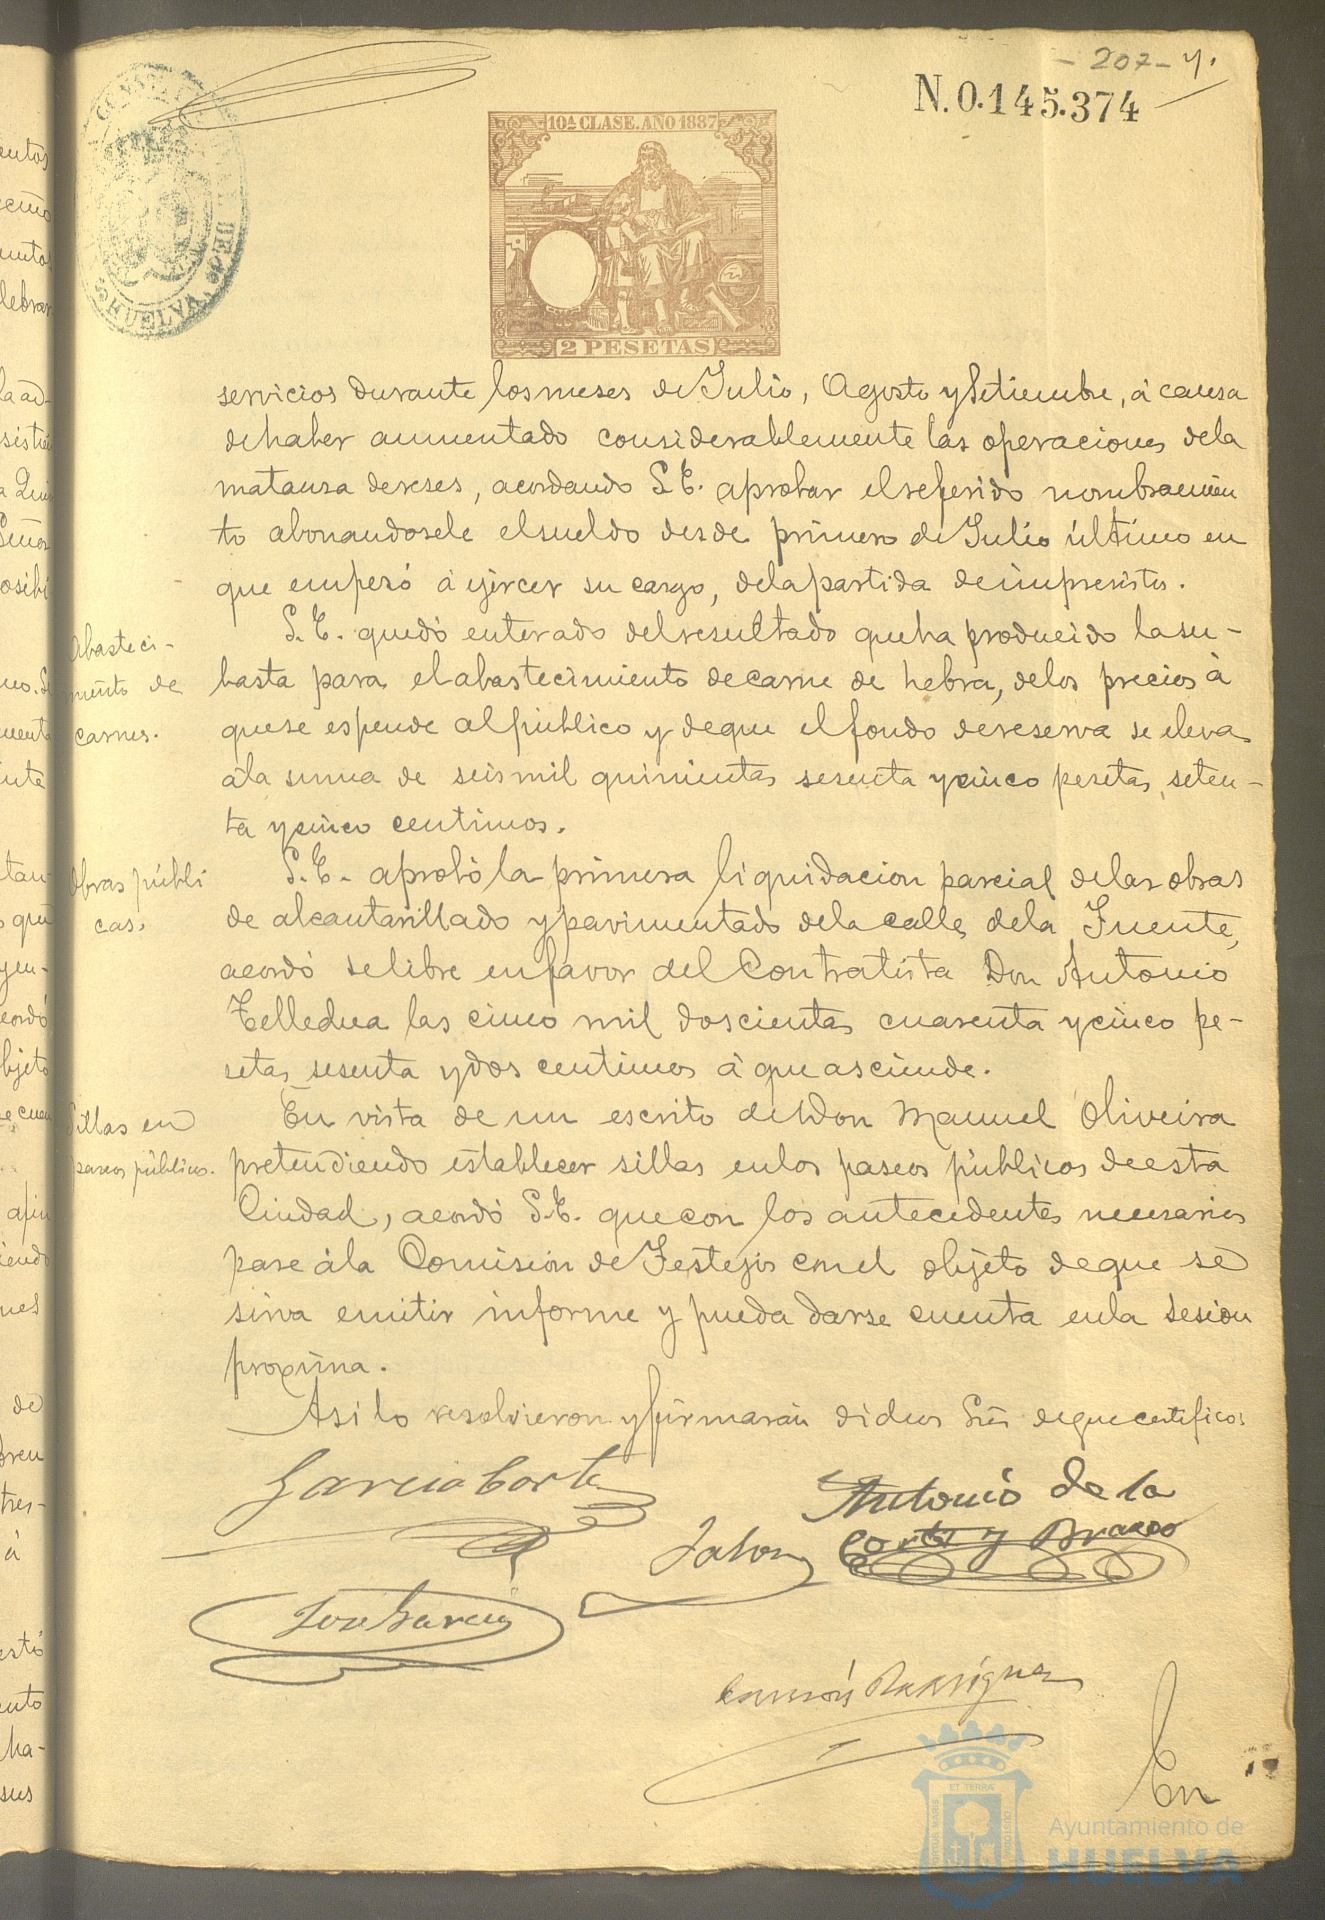 - 207 -
N.0.145.374
10ª CLASE. AÑO 1887
2 PESETAS
HUELVA
servicios durante los meses de Julio, Agosto y Setiembre, á causa
de haber aumentado considerablemente las operaciones de la
matanza de reses, acordando S.E. aprobar el referido nombramien
to abonandosele el sueldo desde primero de Julio último en
que empezó á ejercer su cargo, de la partida de imprevistos.
Abasteci-
miento de
carnes.
S.E. quedó enterado del resultado que ha producido la su-
basta para el abastecimiento de carne de hebra, de los precios á
que se espende al público y de que el fondo de reserva se eleva
á la suma de seis mil quinientas sesenta y cinco pesetas, seten-
ta y cinco centimos.
Obras públi
cas.
S.E. aprobó la primera liquidacion parcial de las obras
de alcantarillado y pavimentado de la calle de la Fuente,
acordó se libre en favor del Contratista Don Antonio
Tellechea las cinco mil doscientas cuarenta y cinco pe-
setas sesenta y dos centimos á que asciende.
Sillas en
paseos públicos.
En vista de un escrito de Don Manuel Oliveira
pretendiendo establecer sillas en los paseos públicos de esta
Ciudad, acordó S.E. que con los antecedentes necesarios
pase á la Comision de Festejos con el objeto de que se
sirva emitir informe y pueda darse cuenta en la sesion
proxima.
Asi lo resolvieron y firmarán dichos Sres de que certifico.
Garcia Cortes
Antonio de la
Corte y Bravo
Jose Garcia
Ramón Rodriguez
En
Ayuntamiento de
HUELVA